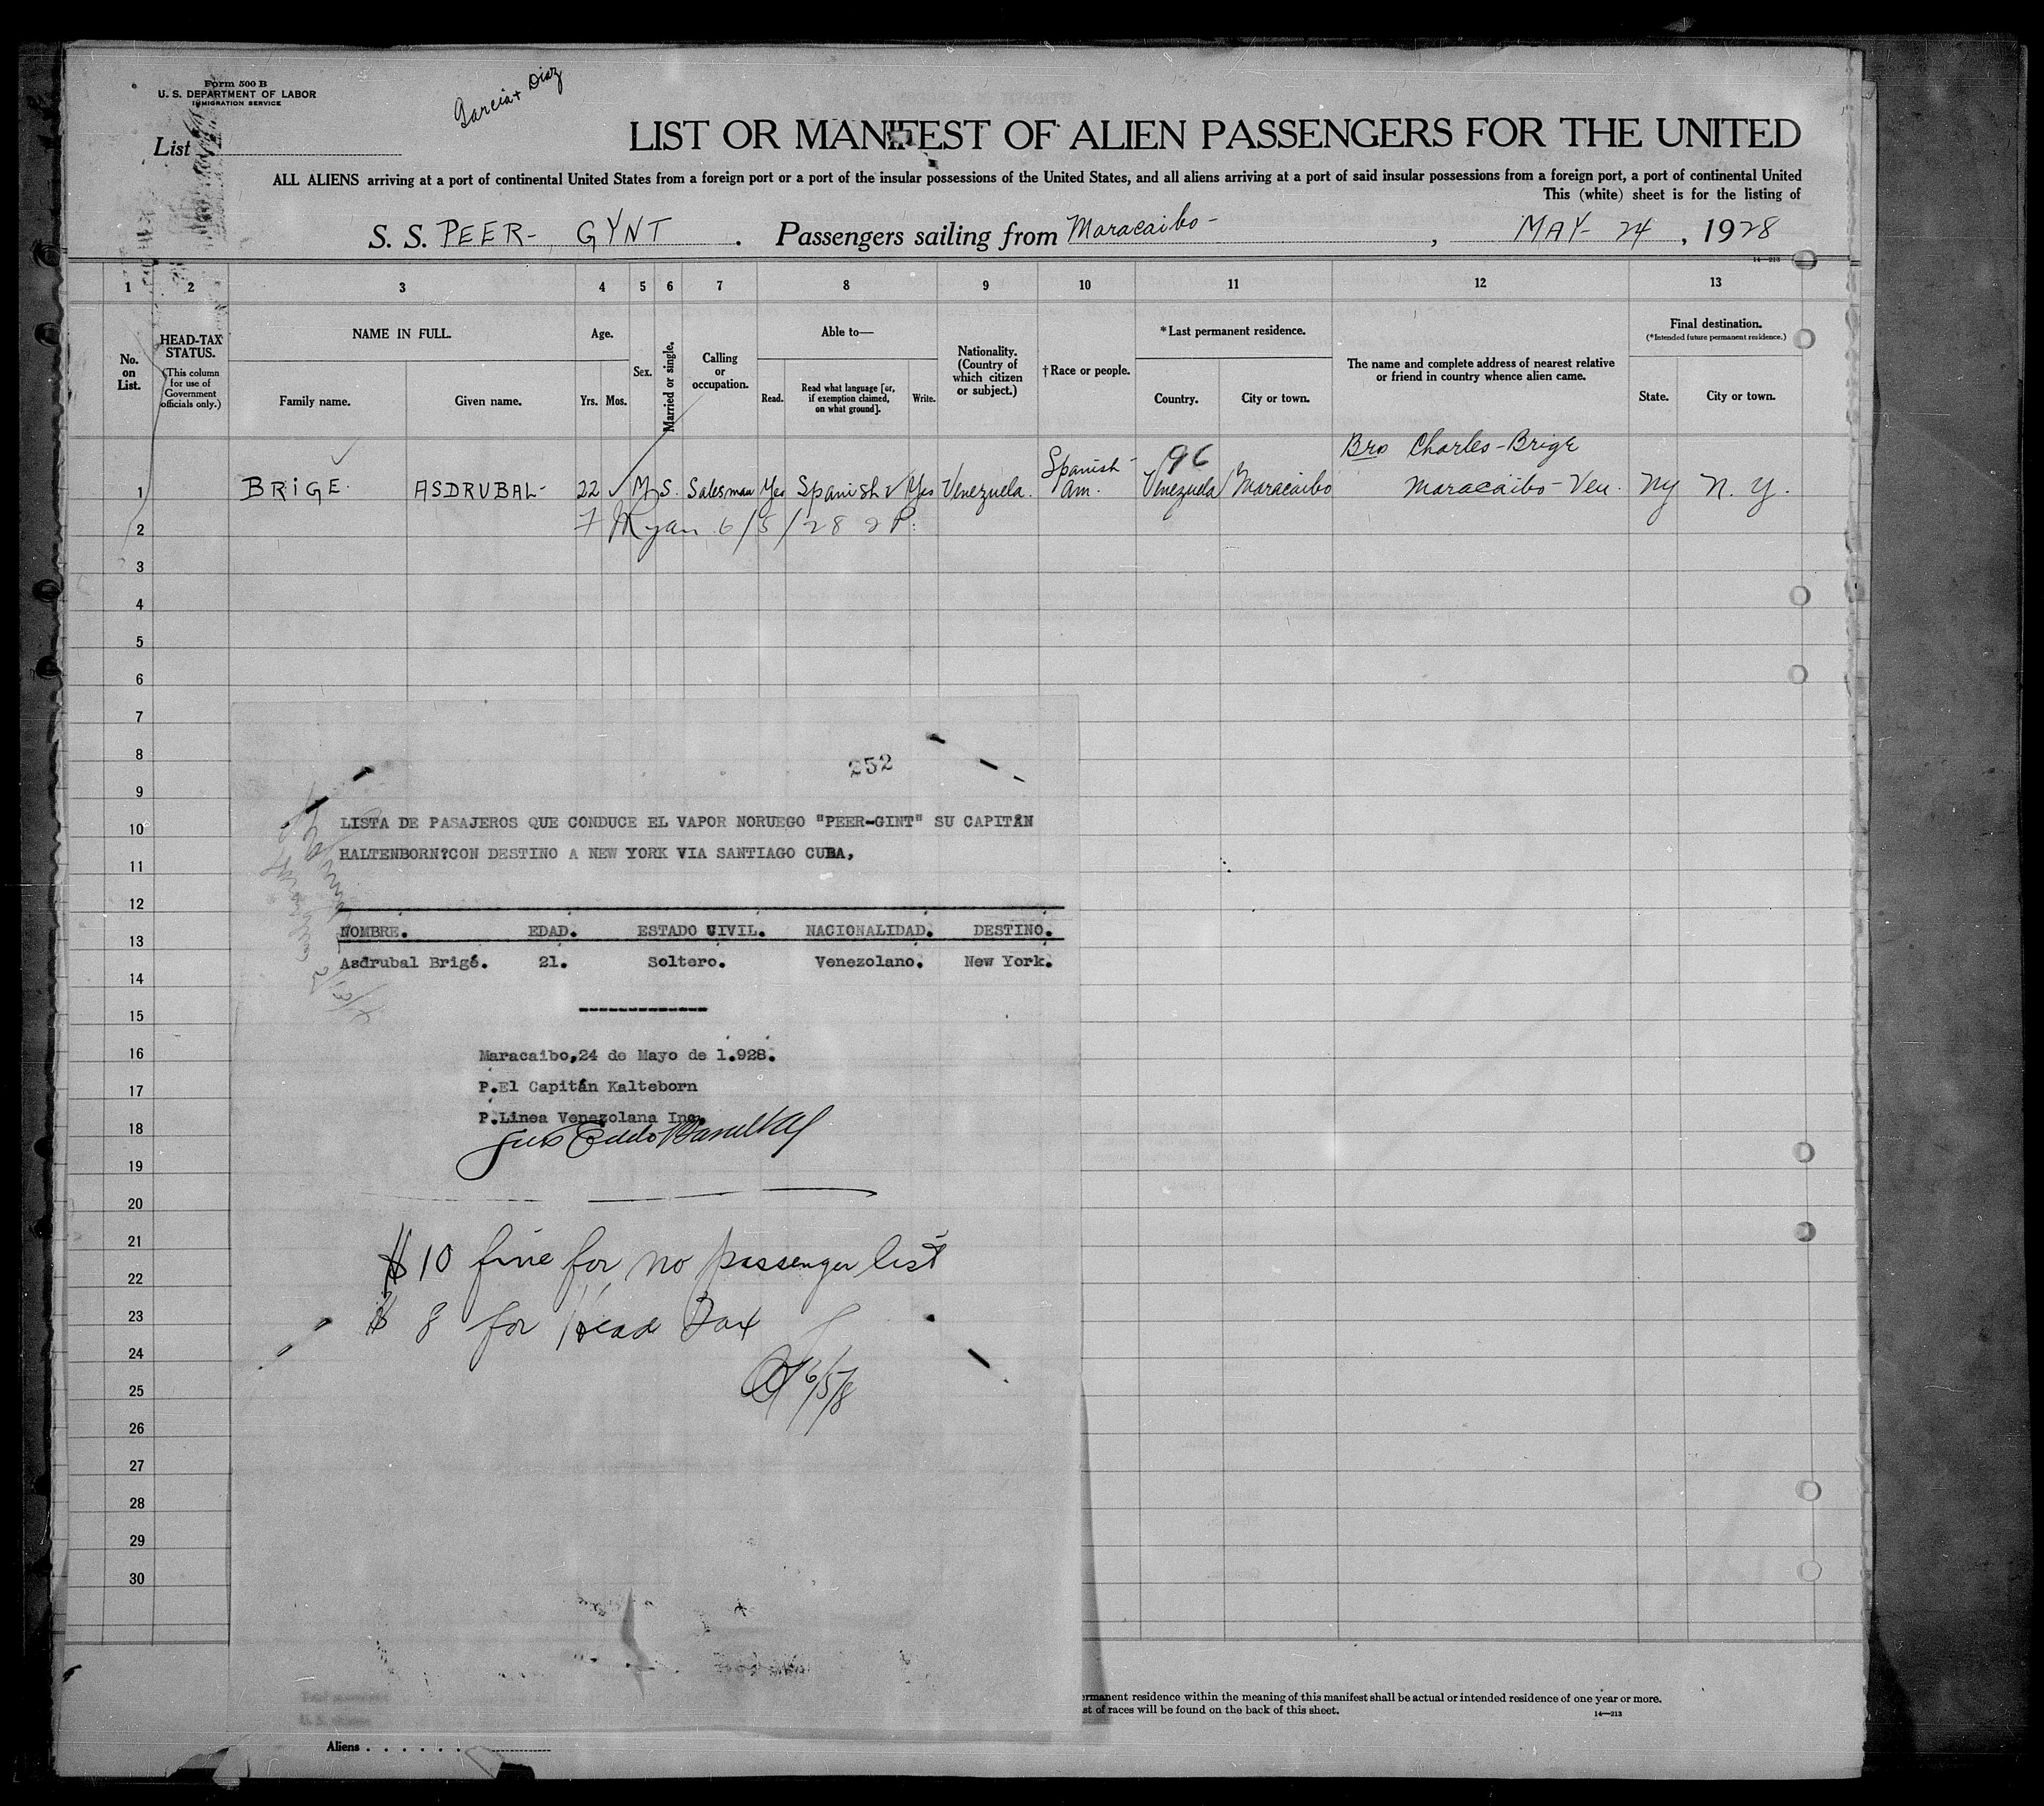 Form 500 B
U. S. DEPARTMENT OF LABOR
IMMIGRATION SERVICE
Garcia + Diaz
List
LIST OR MANIFEST OF ALIEN PASSENGERS FOR THE UNITED
ALL ALIENS arriving at a port of continental United States from a foreign port or a port of the insular possessions of the United States, and all aliens arriving at a port of said insular possessions from a foreign port, a port of continental United
This (white) sheet is for the listing of
S. S. PEER- GYNT . Passengers sailing from Maracaibo- , MAY- 24 , 1928
14—213
1 2 3 4 5 6 7 8 9 10 11 12 13
No. on List.
HEAD-TAX STATUS.
(This column for use of Government officials only.)
NAME IN FULL.
Family name. Given name.
Age.
Yrs. Mos.
Sex.
Married or single.
Calling or occupation.
Able to—
Read. Read what language [or, if exemption claimed, on what ground]. Write.
Nationality. (Country of which citizen or subject.)
†Race or people.
*Last permanent residence.
Country. City or town.
The name and complete address of nearest relative or friend in country whence alien came.
Final destination.
(*Intended future permanent residence.)
State. City or town.
Bro Charles-Brige
1 BRIGE. ASDRUBAL- 22 M S. Salesman Yes Spanish Yes Venezuela. Spanish-Am. 96 Venezuela Maracaibo Maracaibo-Ven. Ny N. Y.
2 Ryan 6/5/28 2P.
3
4
5
6
7
8
9
10
11
12
13
14
15
16
17
18
19
20
21
22
23
24
25
26
27
28
29
30
252
LISTA DE PASAJEROS QUE CONDUCE EL VAPOR NORUEGO "PEER-GINT" SU CAPITÁN
HALTENBORN?CON DESTINO A NEW YORK VIA SANTIAGO CUBA,
NOMBRE. EDAD. ESTADO CIVIL. NACIONALIDAD. DESTINO.
Asdrubal Brigé. 21. Soltero. Venezolano. New York.
Maracaibo,24 de Mayo de 1.928.
P.El Capitán Kalteborn
P.Linea Venezolana Inc.
$10 fine for no passenger list
$ 8 for Head Tax
6/5/8
ermanent residence within the meaning of this manifest shall be actual or intended residence of one year or more.
st of races will be found on the back of this sheet.
14—213
Aliens . . . . . .